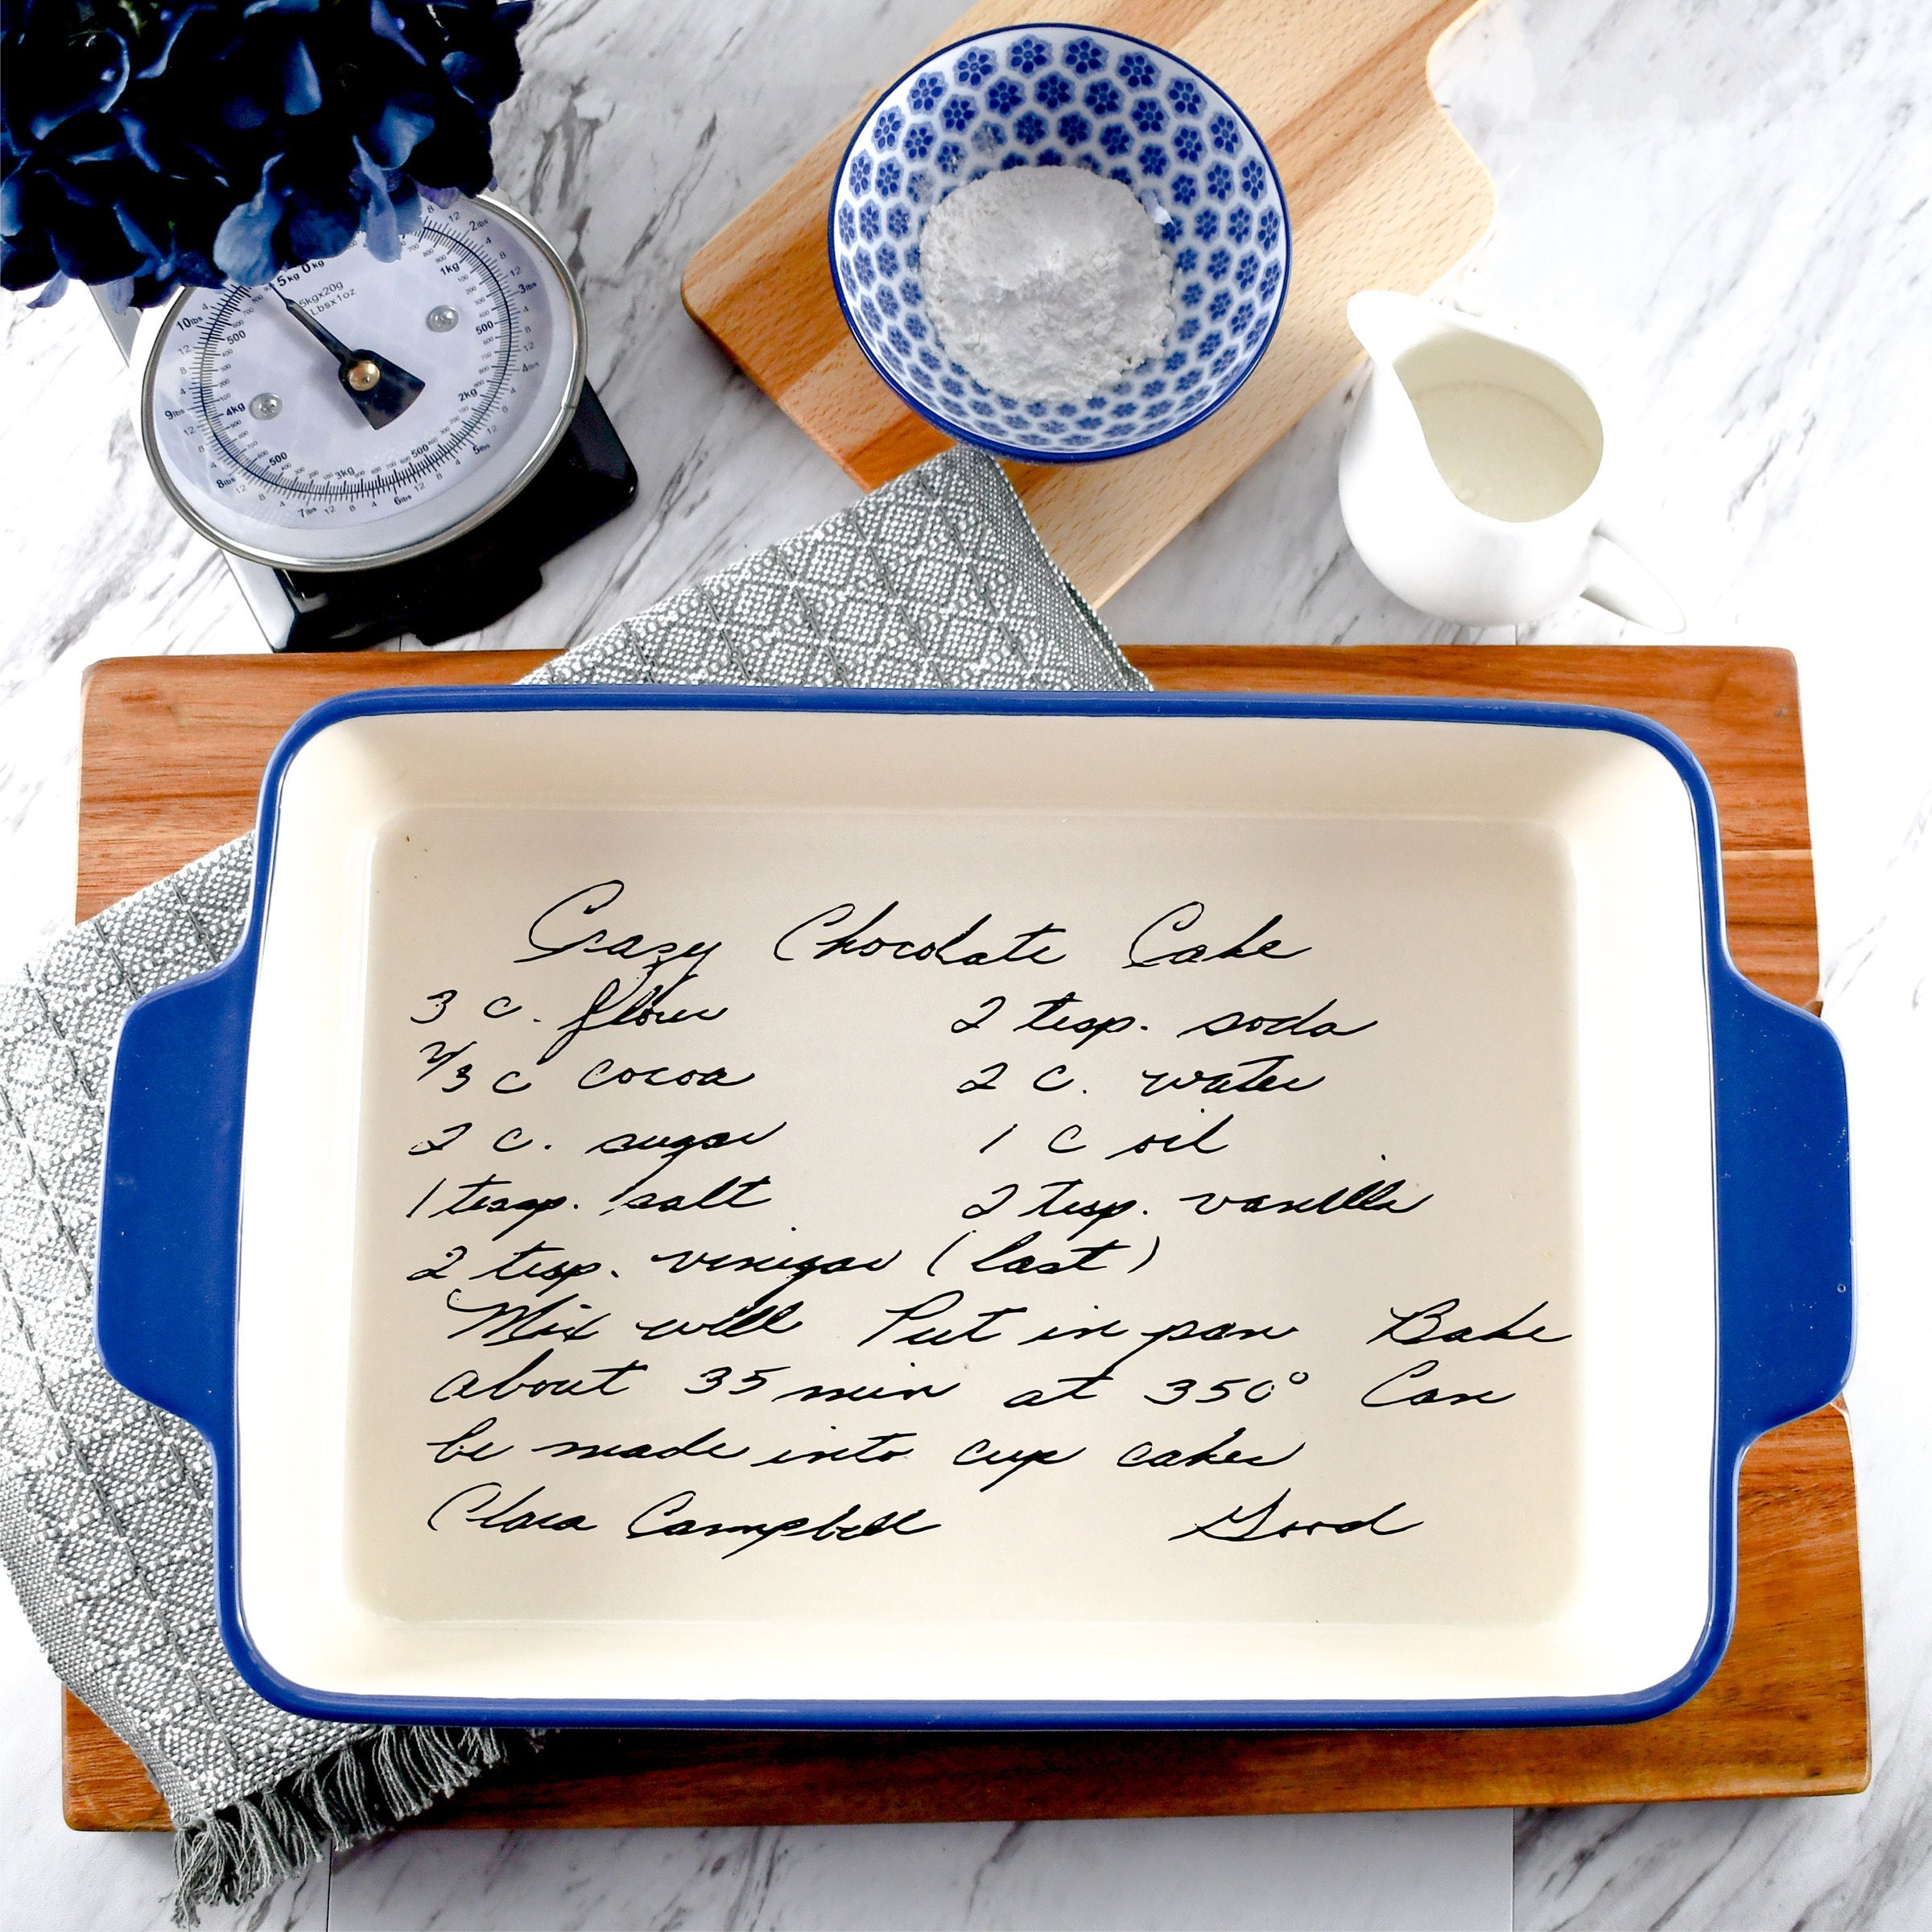 5kg 0kg
1kg
2kg
3kg
4kg
500
500
500
500
2lbs
3lbs
4lbs
5lbs
6lbs
7lbs
8lbs
9lbs
10lbs
5kgx20g
Lbsx1oz
Crazy Chocolate Cake
3 c. flour 2 tesp. soda
2/3 c cocoa 2 c. water
2 c. sugar 1 c oil
1 tesp. salt 2 tesp. vanilla
2 tesp. vinigar (last)
Mix well Put in pan Bake
about 35 min at 350° Can
be made into cup cakes
Clara Campbell Good